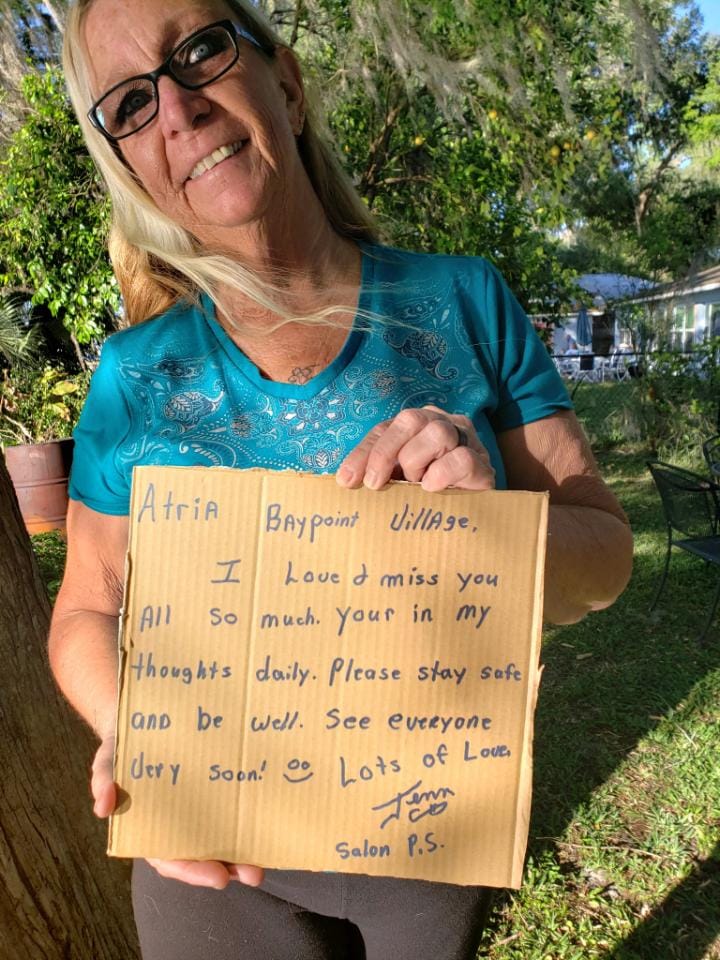 Atria Baypoint Village,
I Love & miss you
All so much. your in my
thoughts daily. Please stay safe
and be well. See everyone
Very soon! Lots of Love,
Jenn
Salon P.S.